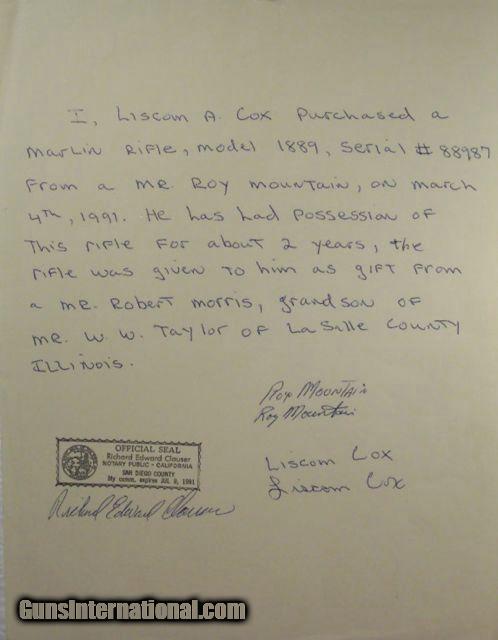 I, Liscom A. Cox purchased a
Marlin Rifle, model 1889, serial # 88987
from a Mr. Roy Mountain, on March
4th, 1991. He has had possession of
this rifle for about 2 years, the
rifle was given to him as gift from
a Mr. Robert Morris, grandson of
Mr. W. W. Taylor of LaSalle County
Illinois.
Roy Mountain
Roy Mountain
OFFICIAL SEAL
Richard Edward Clauser
NOTARY PUBLIC - CALIFORNIA
SAN DIEGO COUNTY
My comm. expires JUL 9, 1991
Liscom Cox
Liscom Cox
Richard Edward Clauser
GunsInternational.com